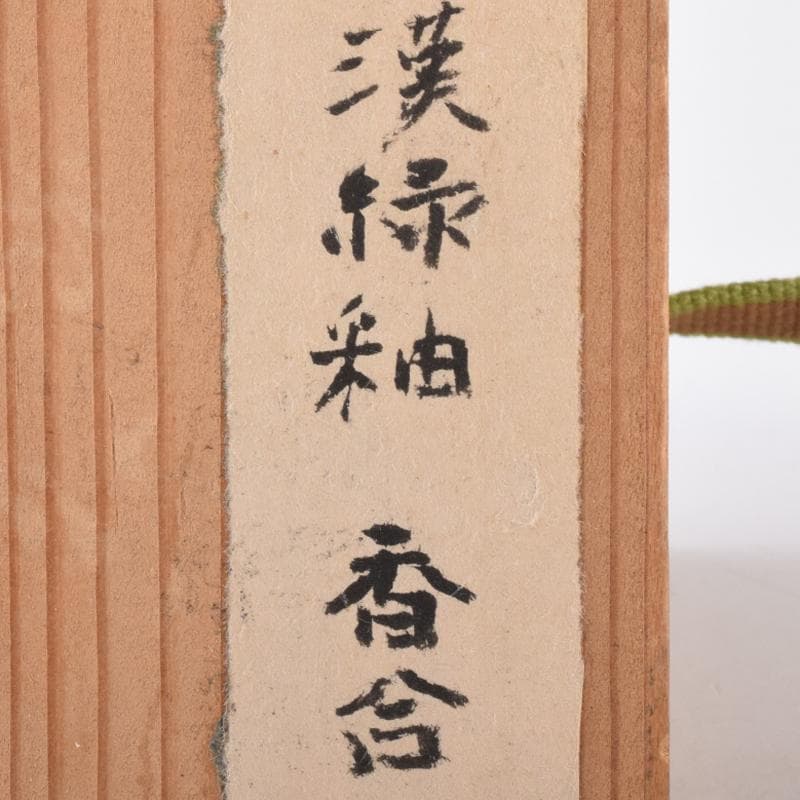 漢緑釉 香合